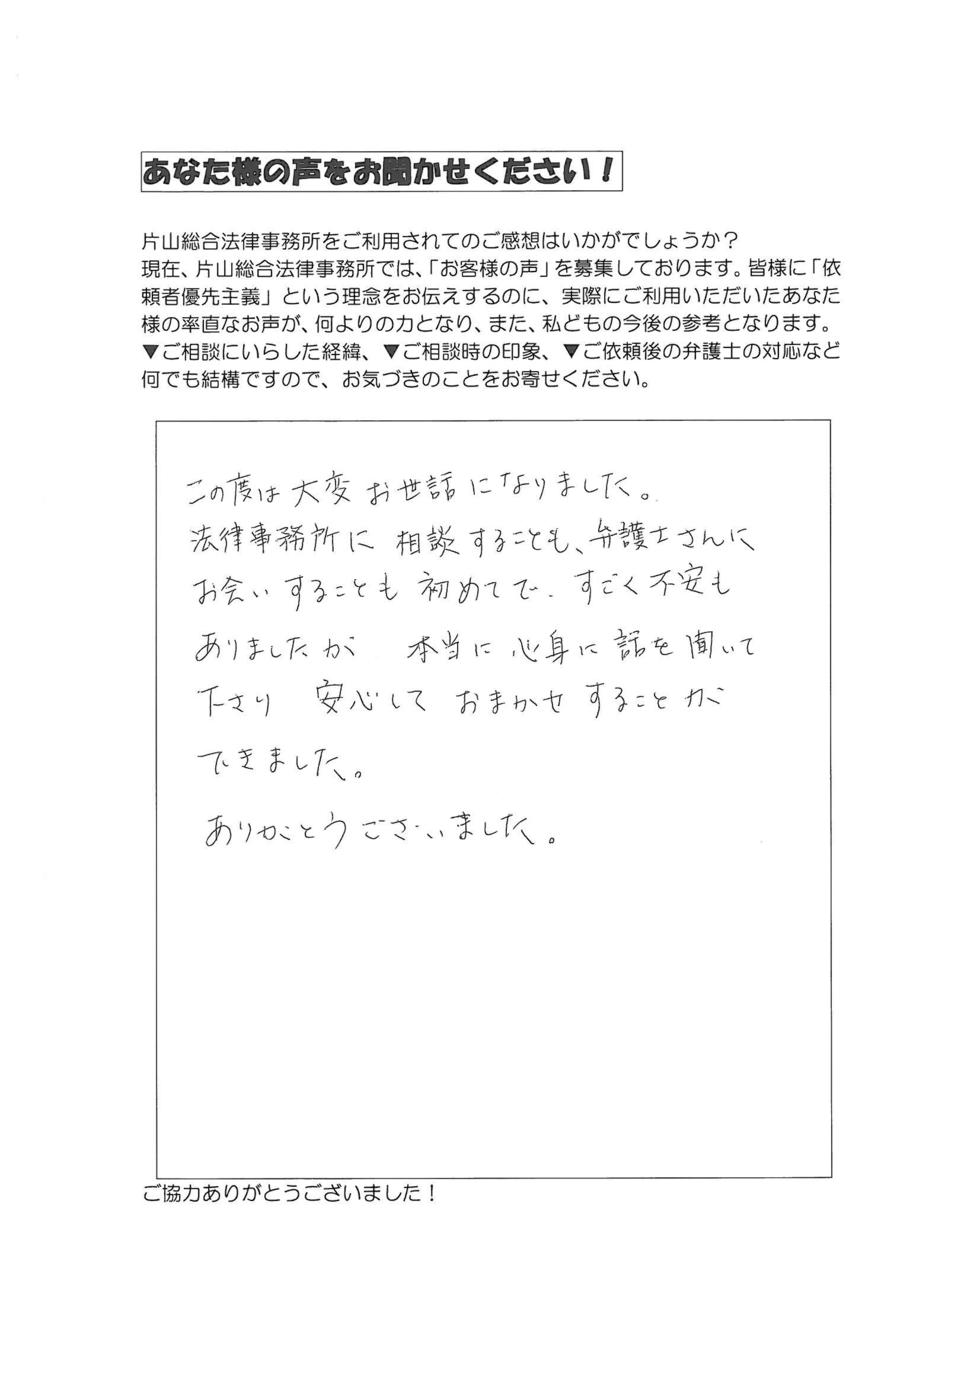 あなた様の声をお聞かせください！
片山総合法律事務所をご利用されてのご感想はいかがでしょうか？
現在、片山総合法律事務所では、「お客様の声」を募集しております。皆様に「依
頼者優先主義」という理念をお伝えするのに、実際にご利用いただいたあなた
様の率直なお声が、何よりの力となり、また、私どもの今後の参考となります。
▼ご相談にいらした経緯、▼ご相談時の印象、▼ご依頼後の弁護士の対応など
何でも結構ですので、お気づきのことをお寄せください。
この度は大変お世話になりました。
法律事務所に 相談することも、弁護士さんに
お会いすることも 初めてで、すごく不安も
ありましたが 本当に心身に話を聞いて
下さり 安心して おまかせすることが
できました。
ありがとうございました。
ご協力ありがとうございました！